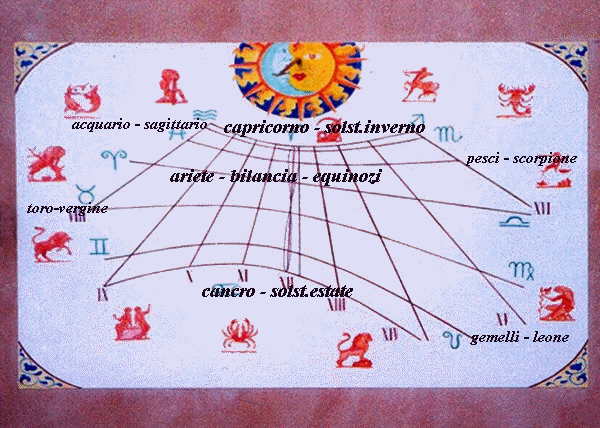 acquario - sagittario
capricorno - solst.inverno
pesci - scorpione
ariete - bilancia - equinozi
toro-vergine
VIII
XII
IX
XI
VII
cancro - solst.estate
XIII
XII
VI
gemelli - leone